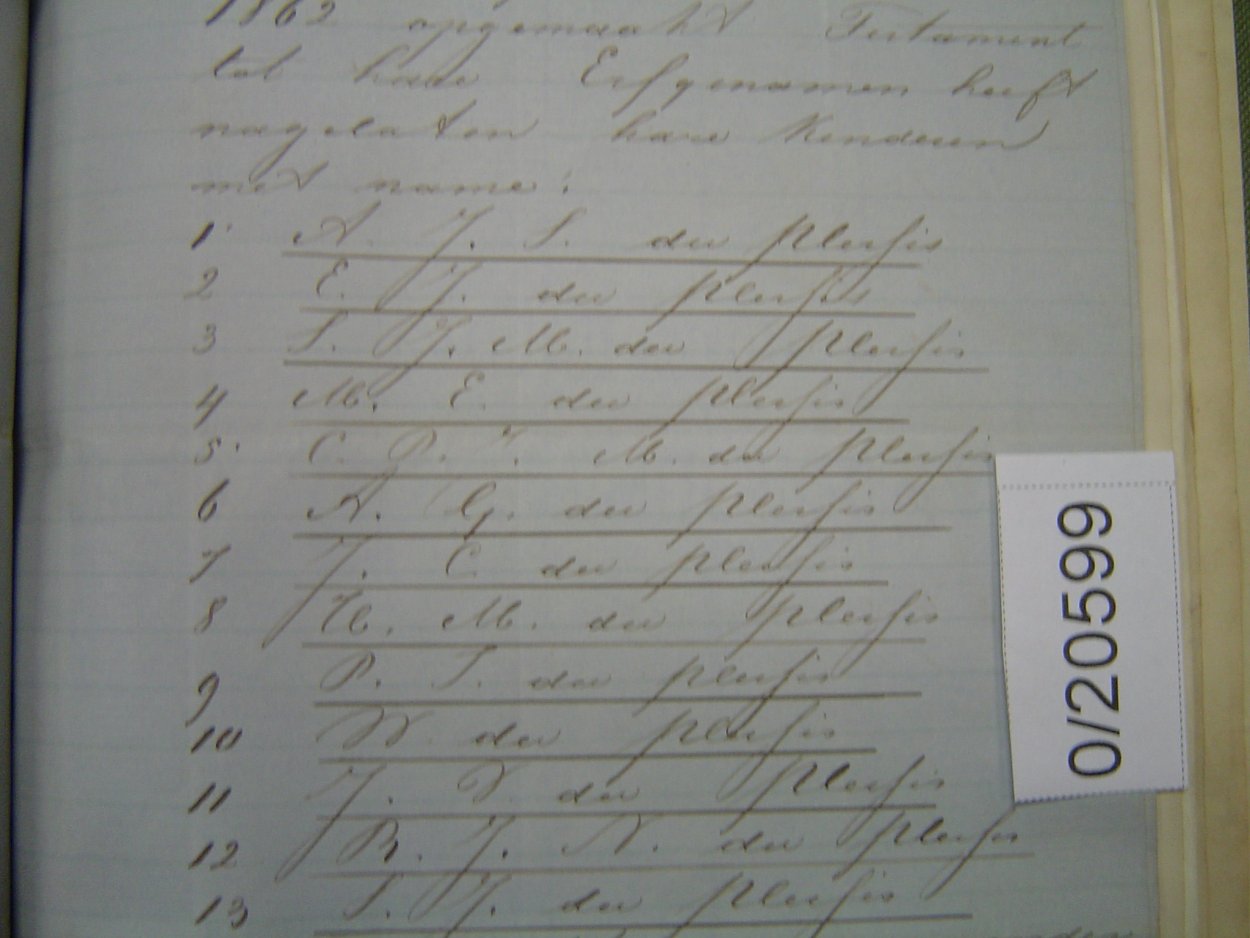 1862 opgemaakt Testament
tot hare Erfgenamen heeft
nagelaten hare Kinderen
met name:
1 A. J. S. du Plessis
2 E. J. du Plessis
3 S. J. M. du Plessis
4 M. E. du Plessis
5 C. P. J. M. du Plessis
6 A. G. du Plessis
7 J. C. du Plessis
8 H. M. du Plessis
9 P. S. du Plessis
10 W. du Plessis
11 J. S. du Plessis
12 R. J. N. du Plessis
13 S. J. du Plessis
0/20599